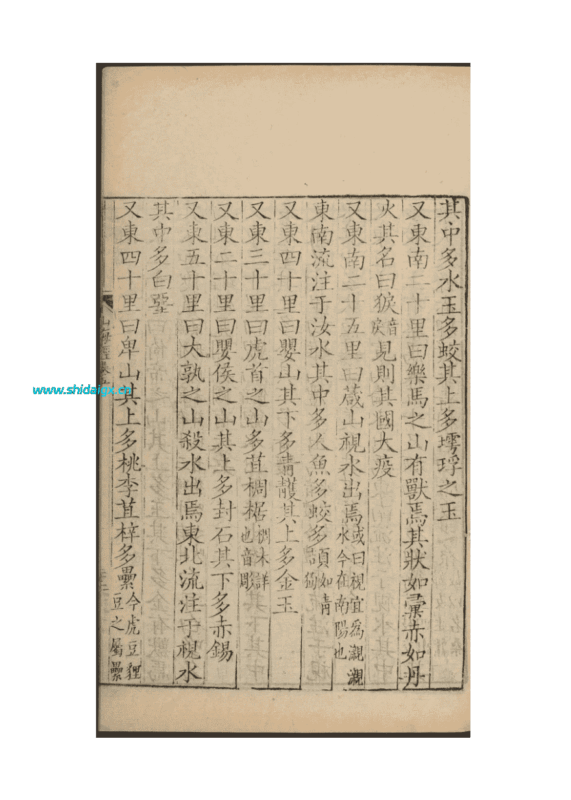 其中多水玉多蛟其上多㻬琈之玉
又東南二十里曰樂馬之山有獸焉其狀如彚赤如丹
火其名曰㹮音戾見則其國大疫
又東南二十五里曰葴山視水出焉或曰視宜爲瀙瀙水今在南陽也
東南流注于汝水其中多人魚多蛟多頡如青狗
又東四十里曰嬰山其下多青雘其上多金玉
又東三十里曰虎首之山多苴椆椐椆木詳也音彫
又東二十里曰嬰侯之山其上多封石其下多赤錫
又東五十里曰大孰之山殺水出焉東北流注于視水
其中多白堊
又東四十里曰卑山其上多桃李苴梓多纍今虎豆貍豆之屬纍
www.shidaigx.cn